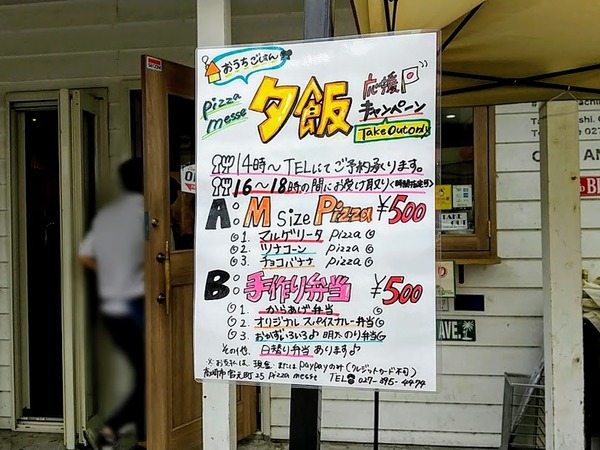 おうちごはん
pizza
messe
夕飯
応援
キャンペーン
Take Out only
14時〜TELにてご予約承ります。
16〜18時の間にお受け取り(時間指定可)
A: M Size Pizza ¥500
1. マルゲリータ pizza
2. ツナコーン pizza
3. チョコバナナ pizza
B: 手作り弁当 ¥500
1. からあげ弁当
2. オリジナル スパイスカレー弁当
3. おかずいろいろ♪ 明たのり弁当
その他、日替り弁当 あります♪
※お支払は、現金 または paypayのみ(クレジットカード不可)
高崎市宮元町25 pizza messe TEL☎027-395-4474
AVE.